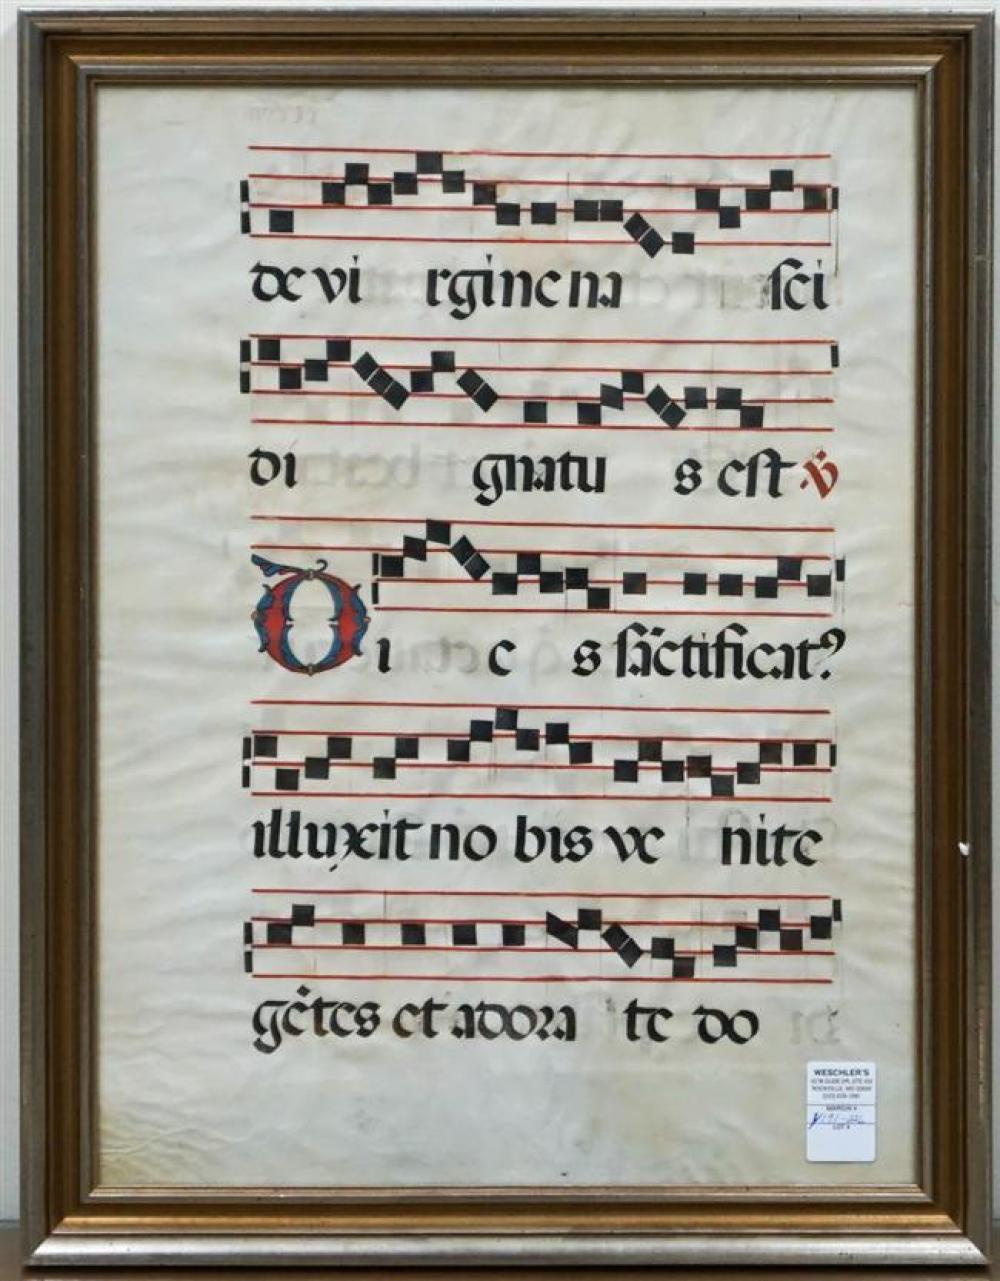 de vi rgine na sci
di gnatu s est ℣
Di e s sāctificat?
illuxit no bis ve nite
gētes et adora te do
WESCHLER'S